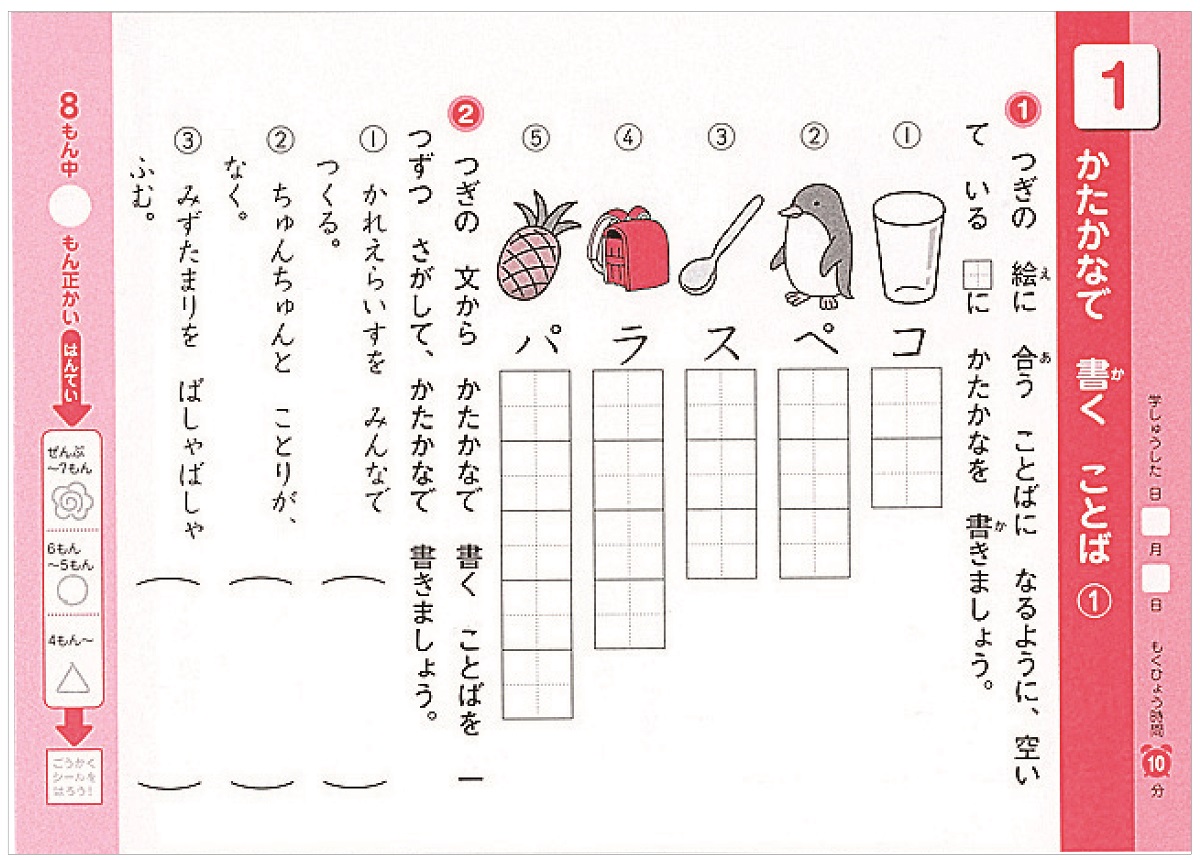 学しゅうした日 月 日 もくひょう時間 10 分
1
かたかなで 書く ことば ①
か
1 つぎの 絵に 合う ことばに なるように、空い
え あ
て いる に かたかなを 書きましょう。
か
① コ
② ペ
③ ス
④ ラ
⑤ パ
2 つぎの 文から かたかなで 書く ことばを 一
つずつ さがして、かたかなで 書きましょう。
① かれえらいすを みんなで
つくる。
② ちゅんちゅんと ことりが、
なく。
③ みずたまりを ばしゃばしゃ
ふむ。
8もん中 もん正かい はんてい
ぜんぶ
~7もん
6もん
~5もん
4もん~
ごうかく
シールを
はろう!